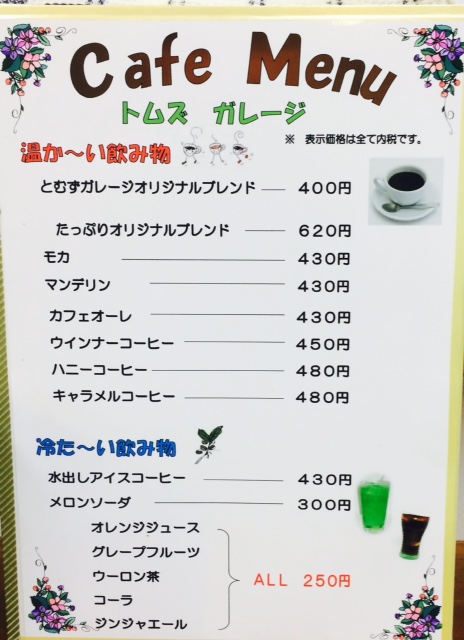 Cafe Menu
トムズ ガレージ
※ 表示価格は全て内税です。
温か～い飲み物
とむずガレージオリジナルブレンド 400円
たっぷりオリジナルブレンド 620円
モカ 430円
マンデリン 430円
カフェオーレ 430円
ウインナーコーヒー 450円
ハニーコーヒー 480円
キャラメルコーヒー 480円
冷た～い飲み物
水出しアイスコーヒー 430円
メロンソーダ 300円
オレンジジュース
グレープフルーツ
ウーロン茶
コーラ
ジンジャエール
ALL 250円